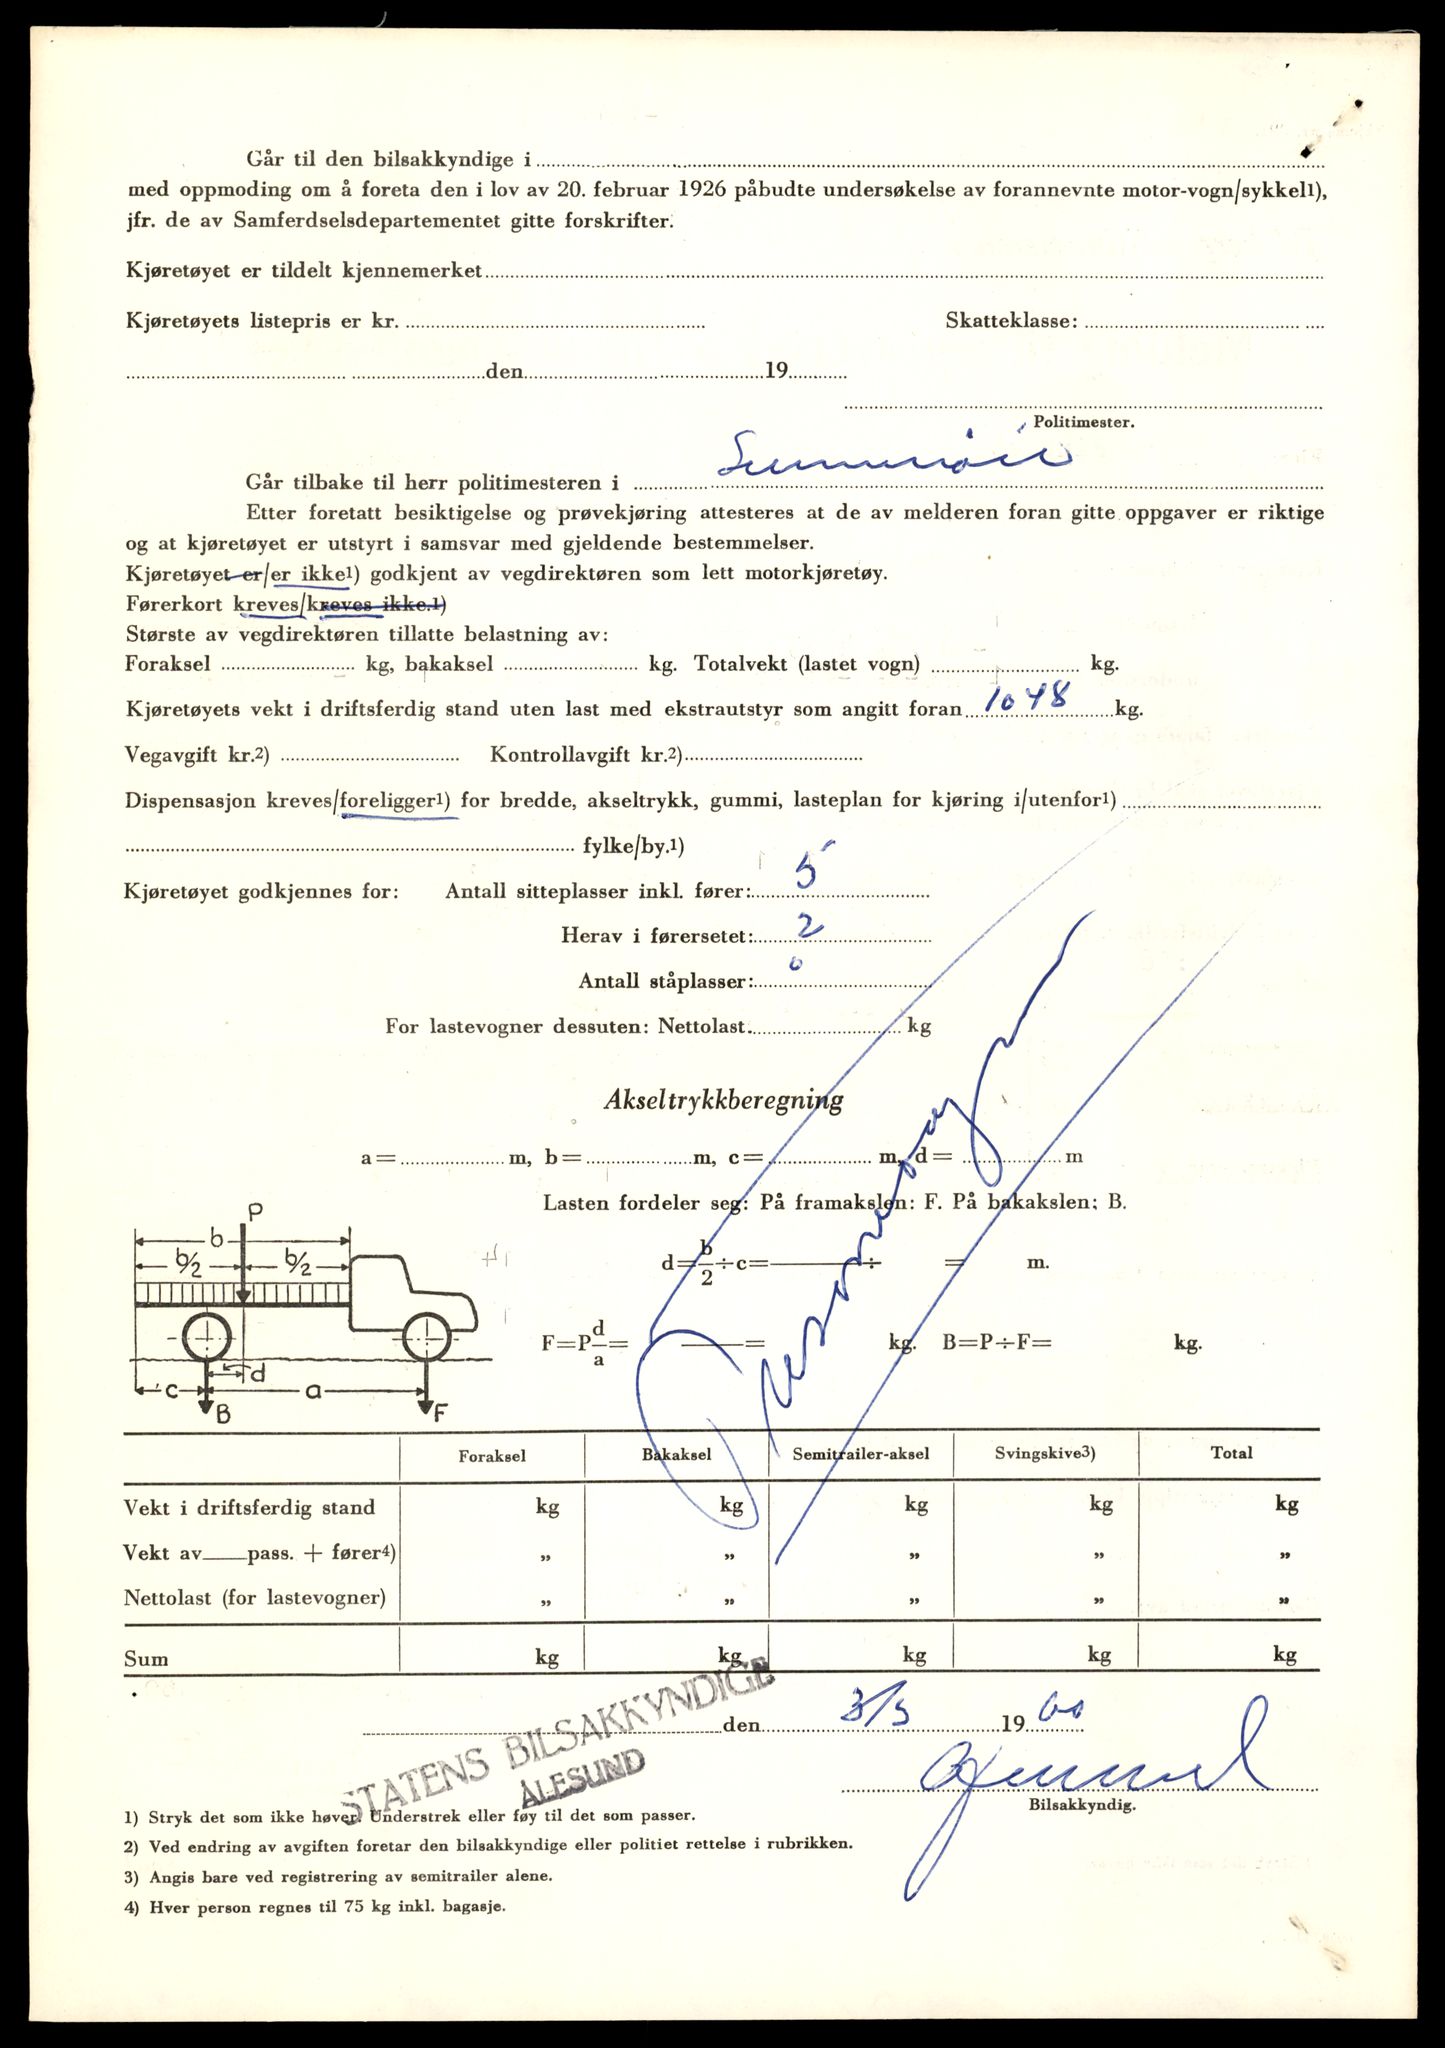 Går til den bilsakkyndige i
med oppmoding om å foreta den i lov av 20. februar 1926 påbudte undersøkelse av forannevnte motor-vogn/sykkel1),
jfr. de av Samferdselsdepartementet gitte forskrifter.
Kjøretøyet er tildelt kjennemerket
Kjøretøyets listepris er kr. Skatteklasse:
den 19
Politimester.
Går tilbake til herr politimesteren i Sunnmøre
Etter foretatt besiktigelse og prøvekjøring attesteres at de av melderen foran gitte oppgaver er riktige
og at kjøretøyet er utstyrt i samsvar med gjeldende bestemmelser.
Kjøretøyet er/er ikke1) godkjent av vegdirektøren som lett motorkjøretøy.
Førerkort kreves/kreves ikke.1)
Største av vegdirektøren tillatte belastning av:
Foraksel kg, bakaksel kg. Totalvekt (lastet vogn) kg.
Kjøretøyets vekt i driftsferdig stand uten last med ekstrautstyr som angitt foran 1048 kg.
Vegavgift kr.2) Kontrollavgift kr.2)
Dispensasjon kreves/foreligger1) for bredde, akseltrykk, gummi, lasteplan for kjøring i/utenfor1)
fylke/by.1)
Kjøretøyet godkjennes for: Antall sitteplasser inkl. fører: 5
Herav i førersetet: 2
Antall ståplasser: 0
For lastevogner dessuten: Nettolast kg
Personvogn
Akseltrykkberegning
a= m, b= m, c= m, d= m
Lasten fordeler seg: På framakslen: F. På bakakslen: B.
d=b/2÷c= ÷ = m.
F=P d/a= = kg. B=P÷F= kg.
P
b
b/2 b/2
d
c a
B F
Foraksel Bakaksel Semitrailer-aksel Svingskive3) Total
Vekt i driftsferdig stand kg kg kg kg kg
Vekt av pass. + fører4) „ „ „ „ „
Nettolast (for lastevogner) „ „ „ „ „
Sum kg kg kg kg kg
den 3/3 19 60
STATENS BILSAKKYNDIGE
ÅLESUND
Bilsakkyndig.
1) Stryk det som ikke høver. Understrek eller føy til det som passer.
2) Ved endring av avgiften foretar den bilsakkyndige eller politiet rettelse i rubrikken.
3) Angis bare ved registrering av semitrailer alene.
4) Hver person regnes til 75 kg inkl. bagasje.